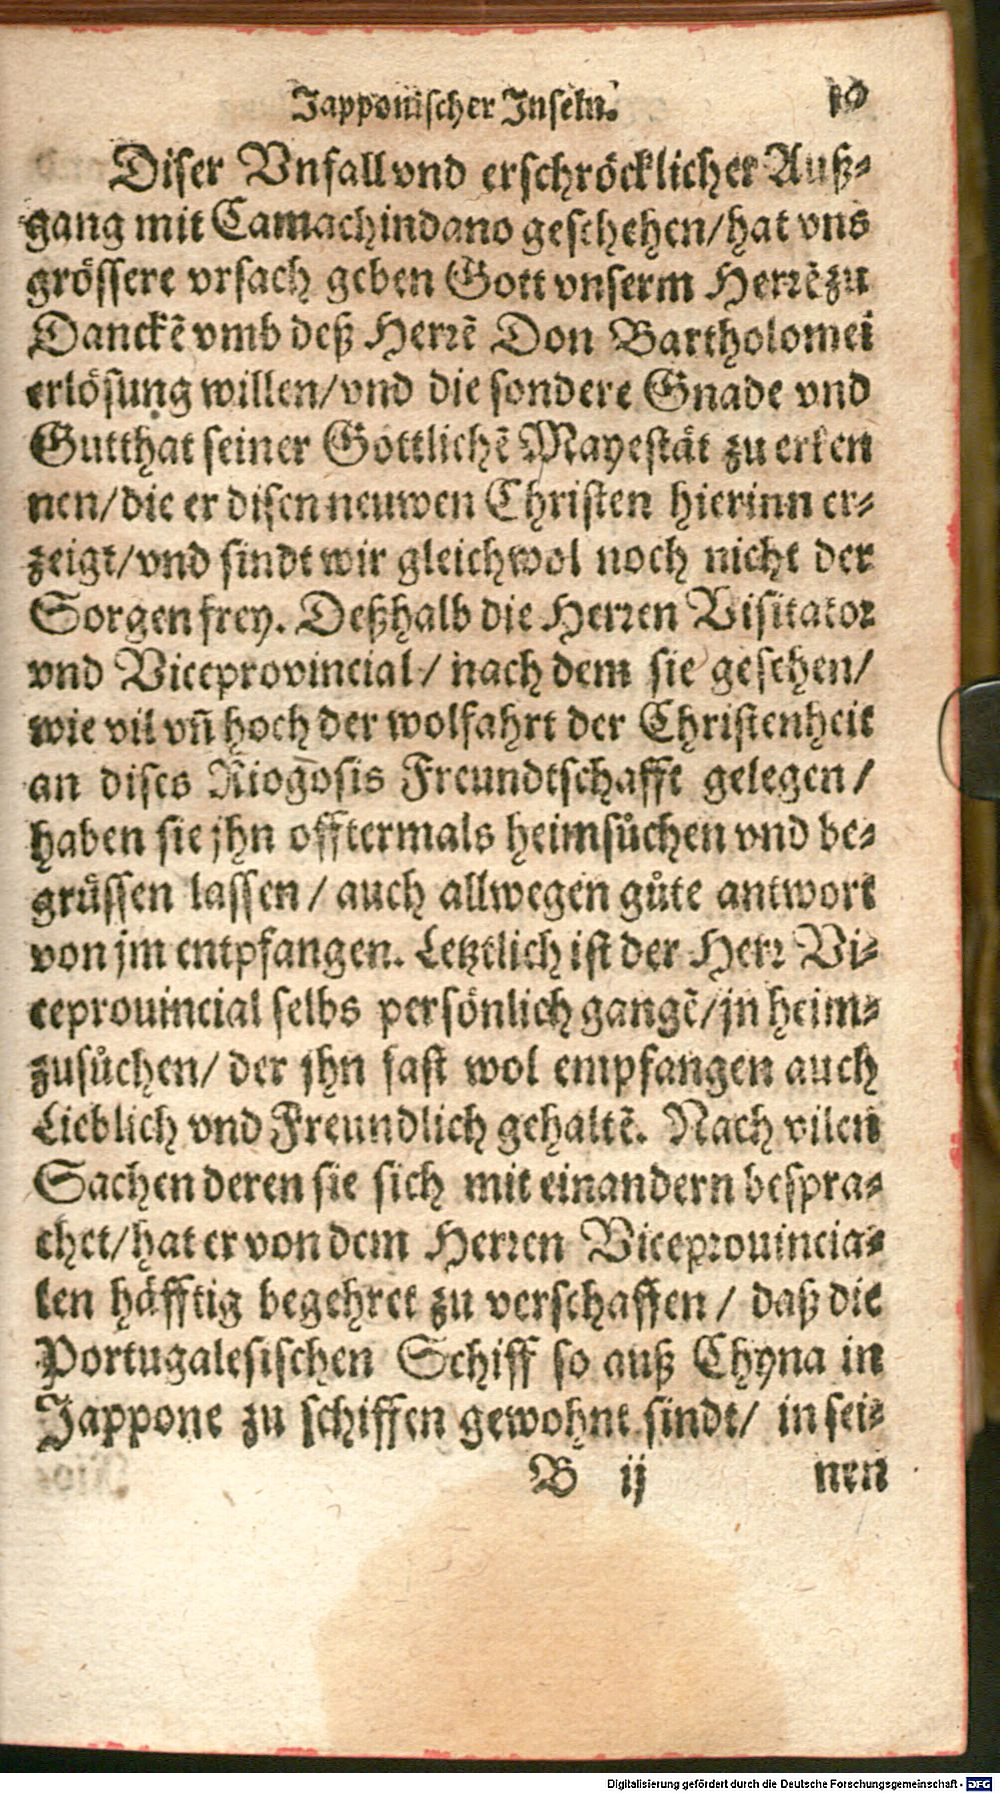 Japponischer Inseln. 10
Diser Vnfall vnd erschröcklicher Auß-
gang mit Camachindano geschehen/ hat vns
grössere vrsach geben Gott vnserm Herrē zu
Danckē vmb deß Herrē Don Bartholomei
erlösung willen/ vnd die sondere Gnade vnd
Gutthat seiner Gottlichē Mayestät zu erken
nen/ die er disen neuwen Christen hierinn er-
zeigt/ vnd sindt wir gleichwol noch nicht der
Sorgen frey. Deßhalb die Herren Visitator
vnd Viceprovincial/ nach dem sie gesehen/
wie vil vn̄ hoch der wolfahrt der Christenheit
an dises Riogosis Freundtschafft gelegen/
haben sie jhn offtermals heimsůchen vnd be-
grüssen lassen/ auch allwegen gůte antwort
von jm entpfangen. Letztlich ist der Herr Vi-
ceprouincial selbs persönlich gangē/ jn heim-
zusůchen/ der jhn fast wol empfangen auch
Lieblich vnd Freundlich gehaltē. Nach vilen
Sachen deren sie sich mit einandern bespra-
chet/ hat er von dem Herren Viceprouincia-
len häfftig begehret zu verschaffen/ daß die
Portugalesischen Schiff so auß Chyna in
Jappone zu schiffen gewohnt sindt/ in sei-
B ij nen
Digitalisierung gefördert durch die Deutsche Forschungsgemeinschaft - DFG